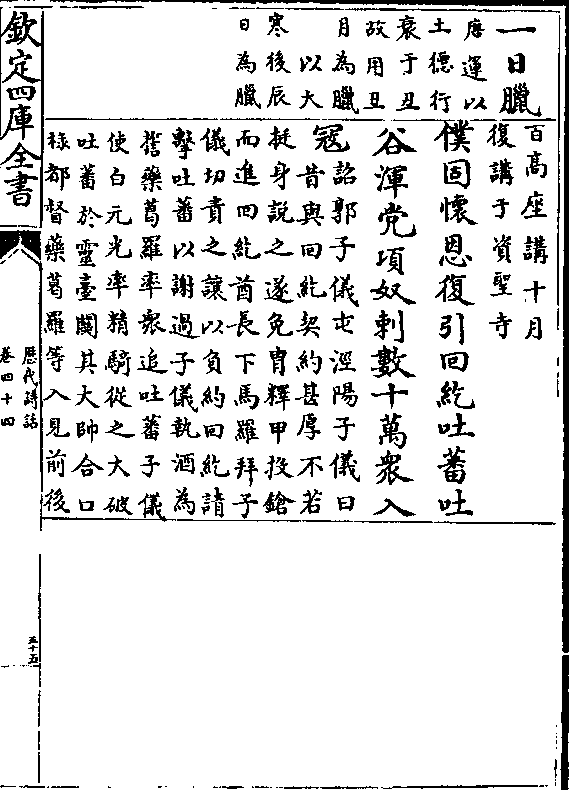 一日臘
唐運以
土德行
衰于丑
故用丑
月為臘
以大
寒後辰
日為臘
百高座講十月
復講于資聖寺
僕固懷恩復引回紇吐蕃吐
谷渾党項奴剌數十萬衆入
冦詔郭子儀屯涇陽子儀曰
昔與回紇契約甚厚不若
挺身說之遂免胄釋甲投鎗
而進回紇酋長下馬羅拜子
儀切責之讓以負約回紇請
擊吐蕃以謝過子儀執酒為
誓藥葛羅率衆追吐蕃子儀
使白元光率精騎從之大破
吐蕃於靈臺闗其大帥合口
祿都督藥葛羅等入見前後
欽定四庫全書
歷代詩話
卷四十四
五十五